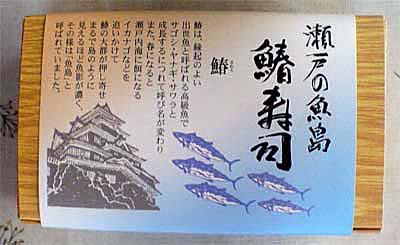 瀬戸の魚島
鰆寿司
鰆
さわら
鰆は、縁起のよい
出世魚と呼ばれる高級魚で
サゴシ・ヤナギ・サワラと
成長するにつれて呼び名が変わり
また、春になると
瀬戸内海に餌になる
イカナゴなどを
追いかけて
鰆の大群が押し寄せ
まるで島のように
見えるほど魚影が濃く、
その様は「魚島」と
呼ばれていました。